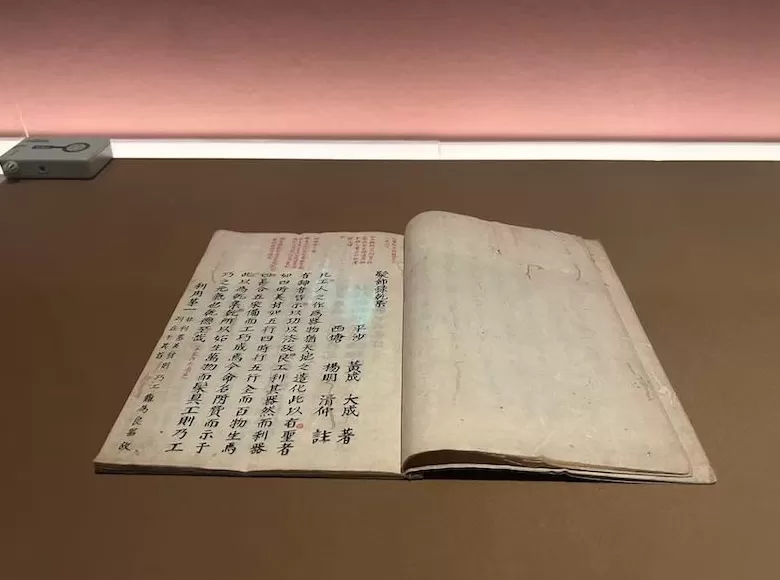 髹飾錄乾集
平沙 黃成 大成 著
西塘 楊明 清仲 註
凡工人之作為器物猶天地之造化此以有聖者
有神者皆示以功以法故良工利其器然而利器
如四時美材如五行四時行五行全而百物生焉
四善合五采備而工巧成焉今命名附贊而示于
此以為乾集乾所以始生萬物而髹具工則乃工
巧之元氣也乾德至哉
利用第一 非利器美材則巧工難為良器故
列于其首